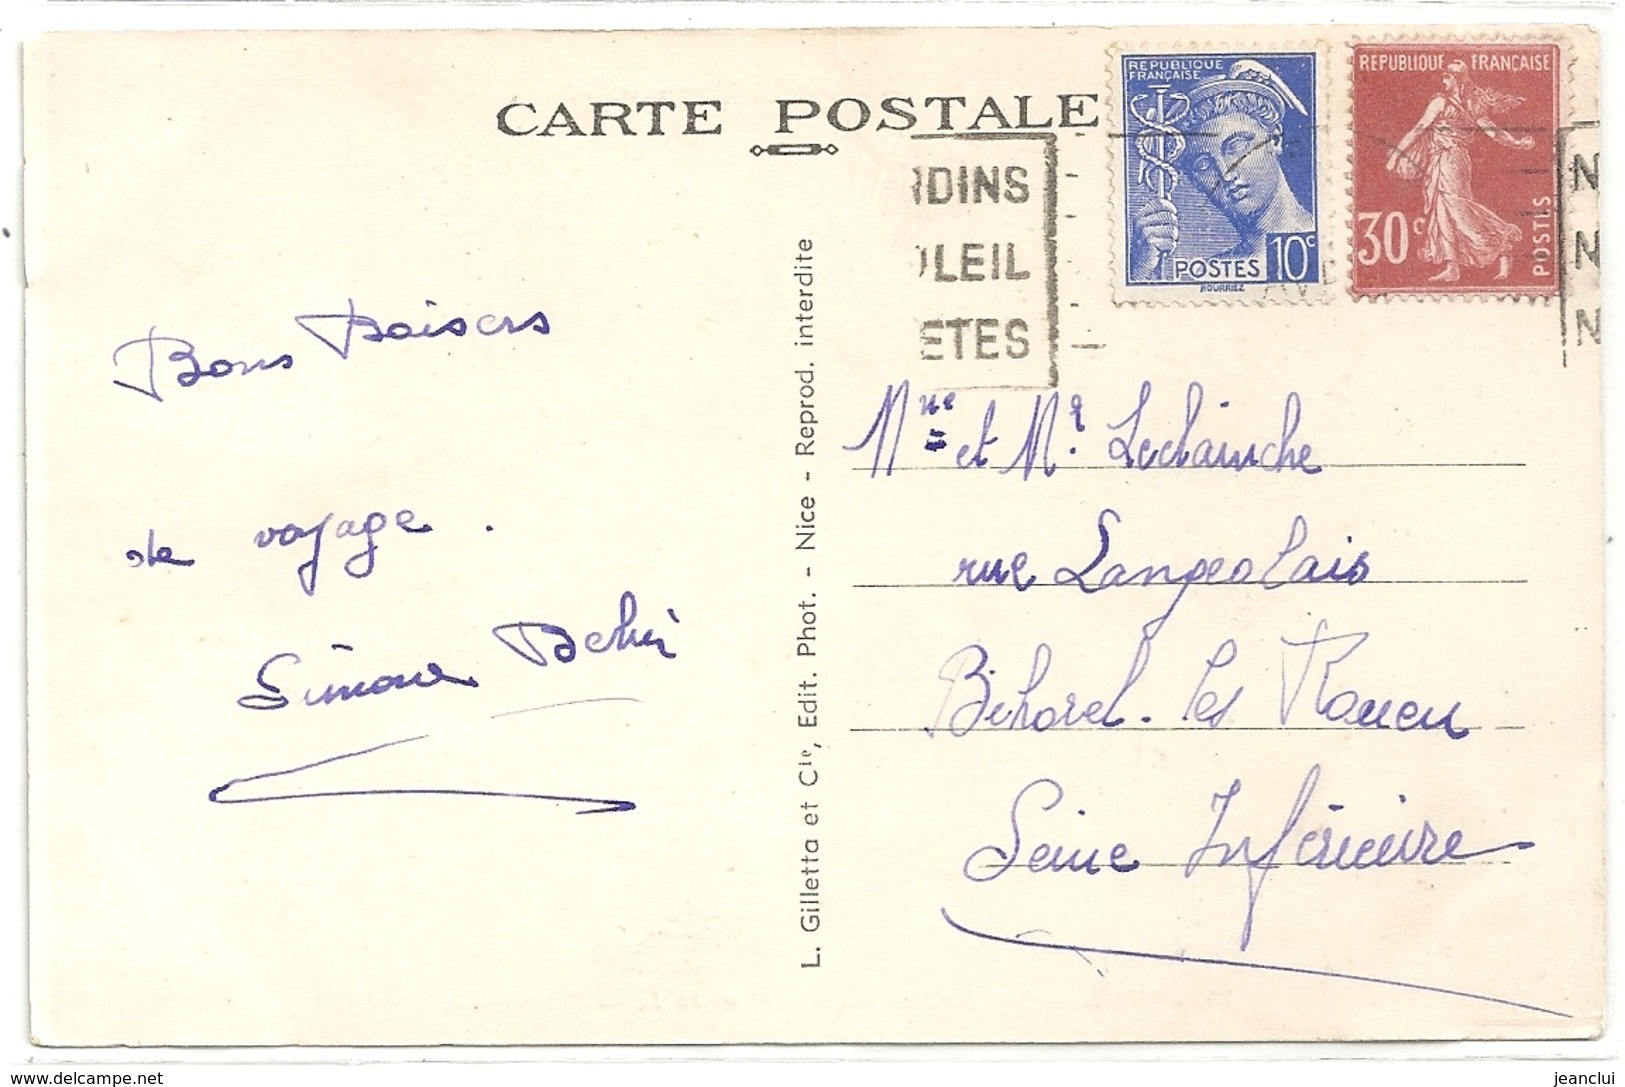 CARTE POSTALE
RDINS
OLEIL
ETES
REPUBLIQUE
FRANÇAISE
10c
POSTES
HOURRIEZ
REPUBLIQUE FRANÇAISE
30c
POSTES
N
N
N
Bons Baisers
de voyage.
Simone
L. Gilletta et Cie, Edit. Phot. - Nice - Reprod. interdite
Mme et Mr. Leclainche
rue Langeolais
Bihorel-les Rouen
Seine Inférieure
www.delcampe.net
jeanclui